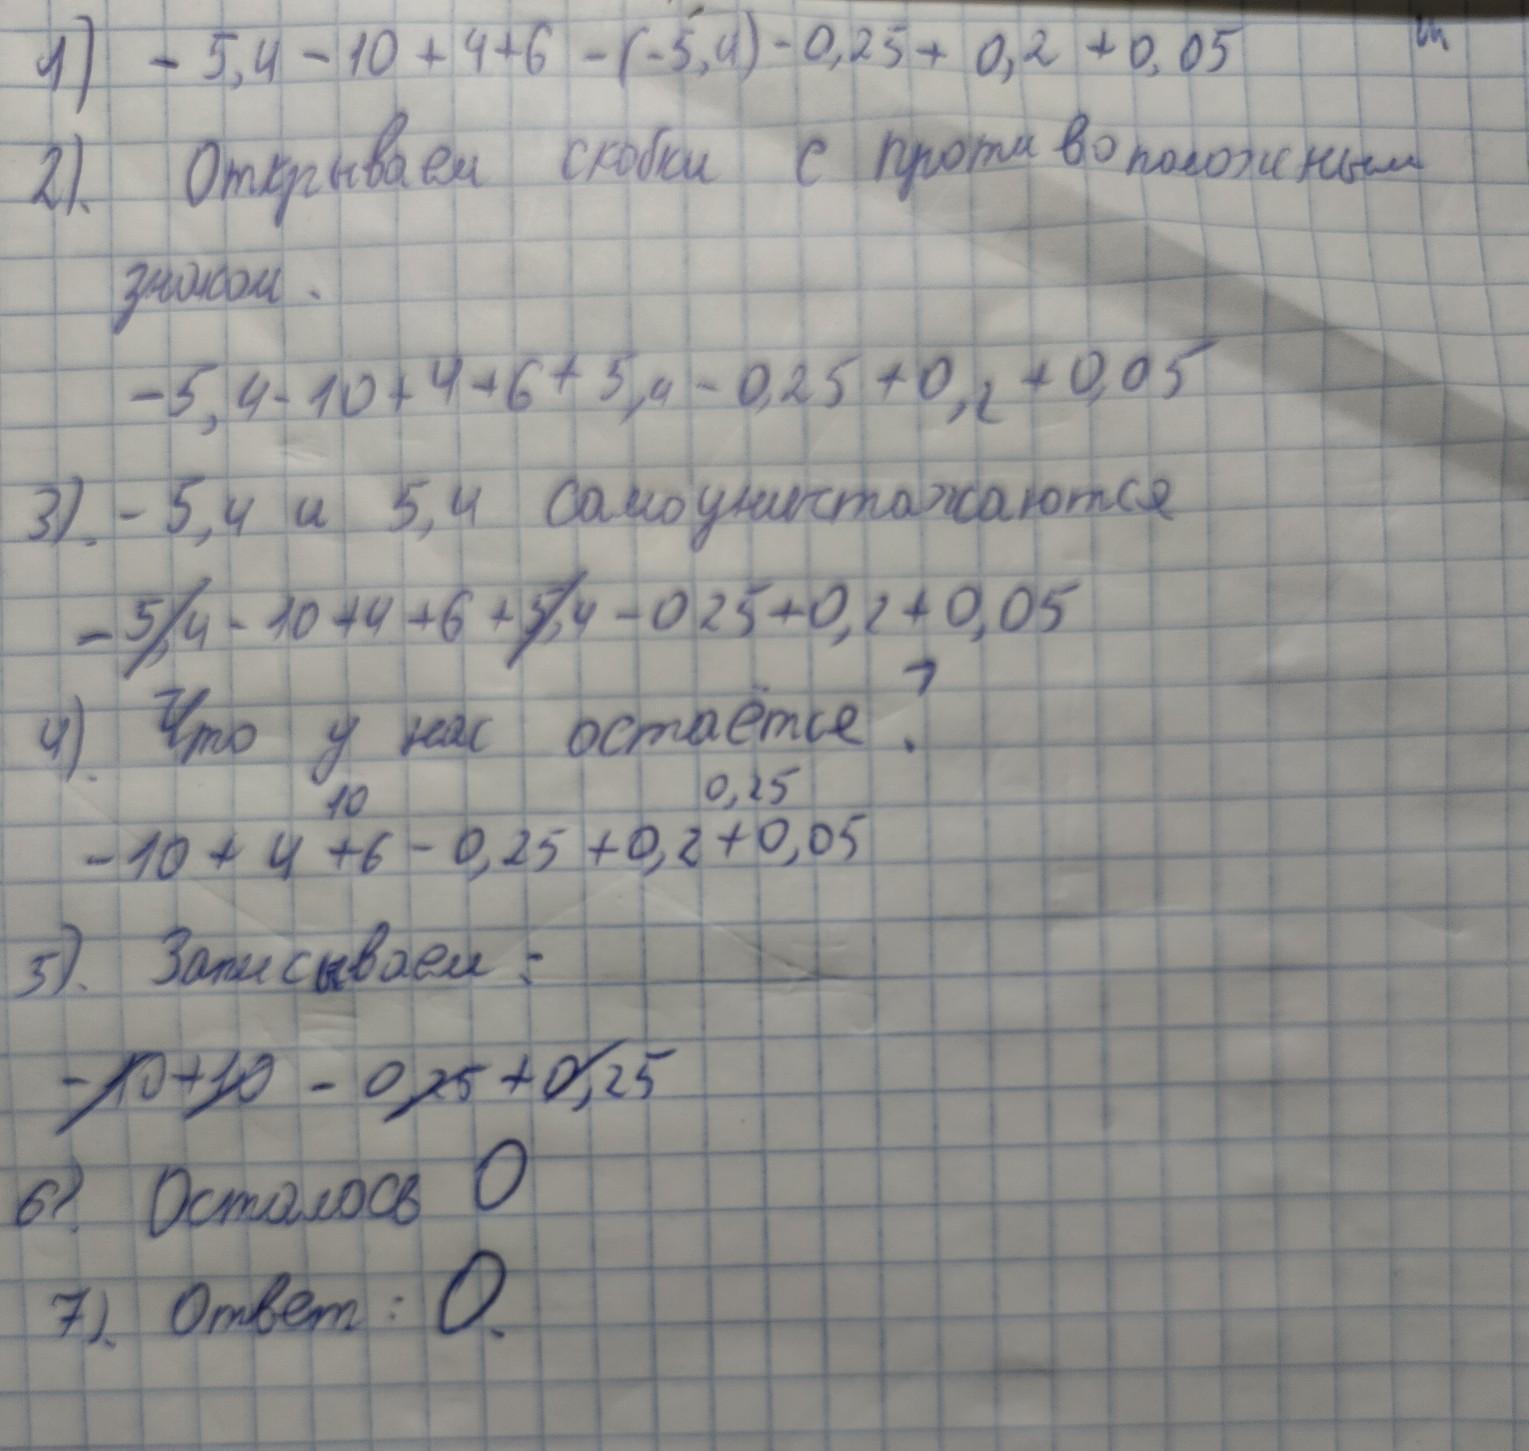 1) - 5,4 - 10 + 4 + 6 - (-5,4) - 0,25 + 0,2 + 0,05
2). Открываем скобки с противоположным
знаком.
-5,4 - 10 + 4 + 6 + 5,4 - 0,25 + 0,2 + 0,05
3). - 5,4 и 5,4 самоуничтожаются
-5,4 - 10 + 4 + 6 + 5,4 - 0 25 + 0,2 + 0,05
4). Что у нас остаётся?
10 0,25
-10 + 4 + 6 - 0,25 + 0,2 + 0,05
5). Записываем:
-10 + 10 - 0,25 + 0,25
6). Осталось 0
7). Ответ: 0.